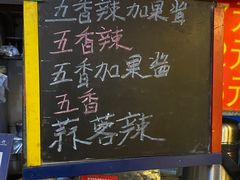 五香辣加果酱
五香辣
五香加果酱
五香
蒜蓉辣
元
元